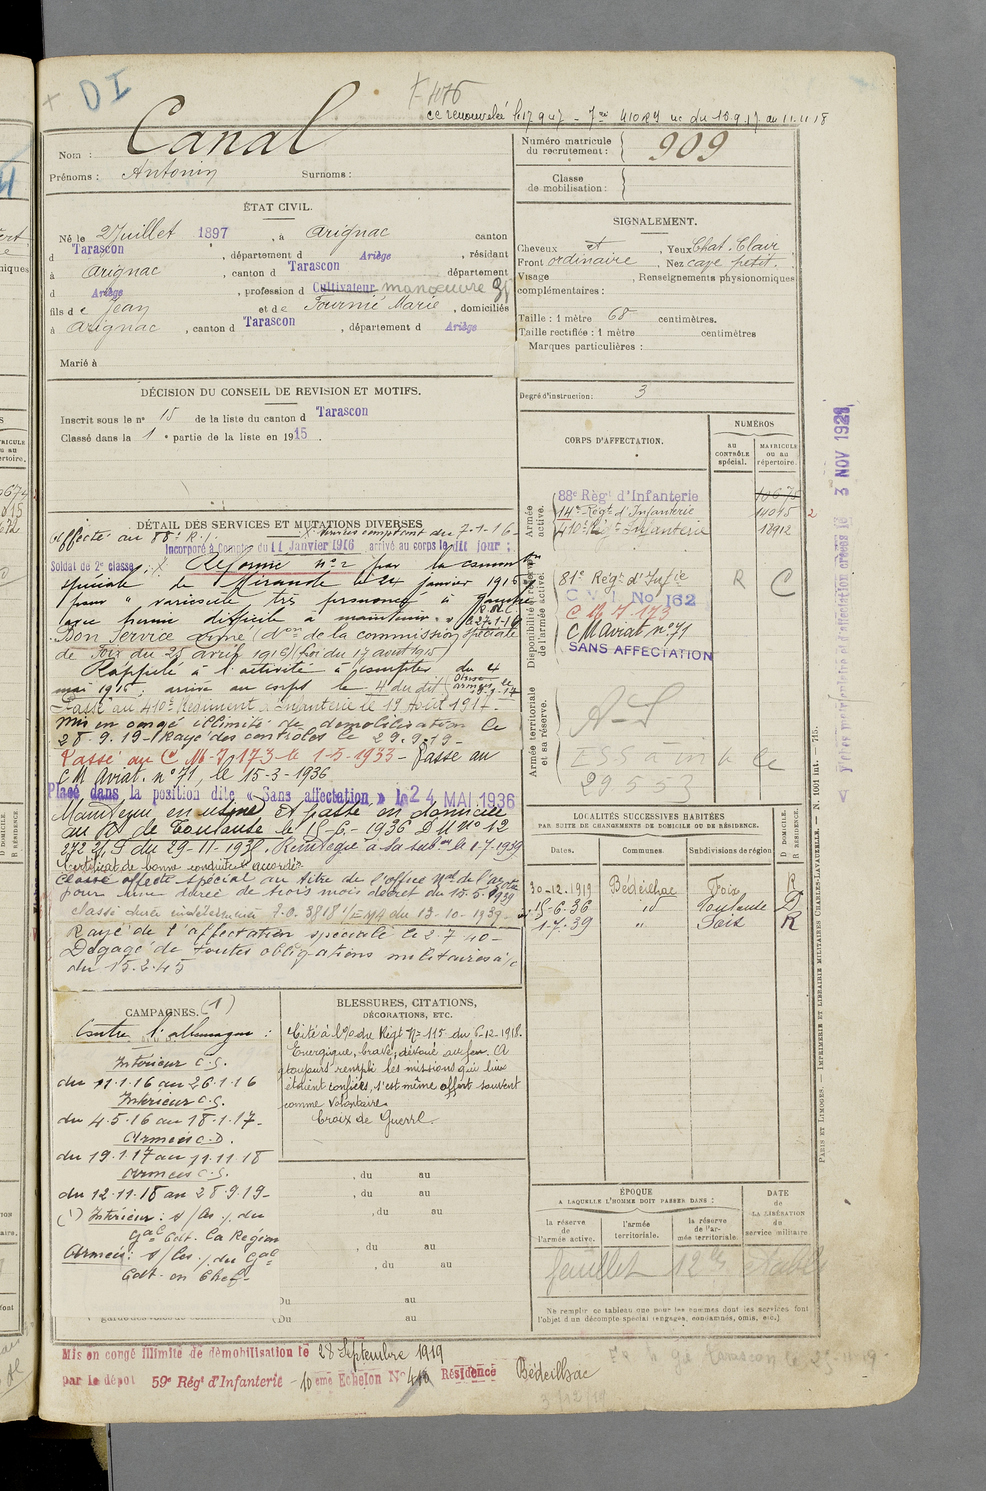 DI
CC renouvelé le 17 9 47 - 7 410 R4 du 10 9 17 au 11.11 18
Nom : Canal
Prénoms : Antonin Surnoms :
Numéro matricule du recrutement : 909
Classe de mobilisation :
ÉTAT CIVIL.
Né le 2 Juillet 1897, à Arignac canton
d Tarascon, département d Ariège, résidant
à Arignac, canton d Tarascon département
d Ariège, profession d Cultivateur manœuvre
fils de Jean et de Fournié Marie, domiciliés
à Arignac, canton d Tarascon, département d Ariège
Marié à
SIGNALEMENT.
Cheveux ct, Yeux Chat. Clair
Front ordinaire, Nez cave petit.
Visage, Renseignements physionomiques
complémentaires :
Taille : 1 mètre 68 centimètres.
Taille rectifiée : 1 mètre centimètres
Marques particulières :
Degré d'instruction : 3
DÉCISION DU CONSEIL DE REVISION ET MOTIFS.
Inscrit sous le n° 15 de la liste du canton d Tarascon
Classé dans la 1e partie de la liste en 1915.
DÉTAIL DES SERVICES ET MUTATIONS DIVERSES
Affecté au 88e R.I. X Services comptent du 7-1-16
Incorporé à compter du 11 Janvier 1916, arrivé au corps le dit jour ;
Soldat de 2e classe ; X Réformé n° 2 par la common
spéciale de Mirande le 24 Janvier 1916
pour " varicocèle très prononcé à gauche
avec hernie difficile à maintenir "
Bon Service armé (don de la commission spéciale
de Foix du 25 avril 1916) (loi du 17 août 1915)
Rappelé à l'activité à compter du 4
mai 1916 ; arrivé au corps le 4 du dit
Passé au 410e Régiment d'Infanterie le 19 Août 1917.
Mis en congé illimité de démobilisation le
28.9.19 - Rayé des contrôles le 29.9.19
Passé au C M-7-173 le 1-5-1933 - Passé au
C M Aviat. n° 71, le 15-3-1936
Placé dans la position dite « Sans affectation » le 24 MAI 1936
Maintenu en usine et passé en domicile
au R. de Toulouse le 15-6-1936 D U N° 12
272 du 29-11-1938. Réintégré à sa sub. le 1-7-1939
Certificat de bonne conduite accordé
Classé affecté spécial au titre de l'office Nal de l'azote
pour une durée de trois mois décret du 15-5-1939
classé durée indéterminée 3818 du 13-10-1939
Rayé de l'affectation spéciale le 2-7-40-
Dégagé de toutes obligations militaires à/c
du 15.2.45
CORPS D'AFFECTATION.
NUMÉROS
au CONTRÔLE spécial.
MATRICULE ou au répertoire.
Armée active.
88e Régt d'Infanterie 10675
14e Régt d'Infanterie 14095
410e Régt Infanterie 12912
Disponibilité et réserve de l'armée active.
81e Régt d'Infie R C
C.V.I. No 162
C M 7.173
C M Aviat n° 71
SANS AFFECTATION
Armée territoriale et sa réserve.
A-S
29553
3 NOV 1921
LOCALITÉS SUCCESSIVES HABITÉES
PAR SUITE DE CHANGEMENTS DE DOMICILE OU DE RÉSIDENCE.
Dates. Communes. Subdivisions de région. D DOMICILE. R RÉSIDENCE.
30-12-1919 Bédeilhac Foix R
15-6-36 id Toulouse D
1-7-39 " Foix R
CAMPAGNES. (1)
Contre l'Allemagne :
Intérieur C.S.
du 11.1.16 au 26.1.16
Intérieur C.S.
du 4.5.16 au 18.1.17-
Armées C.D.
du 19.1.17 au 11.11.18
Armées C.S.
du 12.11.18 au 28.9.19-
(1) Intérieur : du
Gal Cdt. la Région
Armées : du Gal
Cdt. en Chef-
BLESSURES, CITATIONS,
DÉCORATIONS, ETC.
Cité à l'O du Régt N° 115 du 6-12-1918.
Energique, brave, dévoué au feu. A
toujours rempli les missions qui lui
étaient confiées, s'est même offert souvent
comme volontaire.
Croix de Guerre.
, du au
, du au
, du au
, du au
, du au
Du au
Du au
ÉPOQUE
A LAQUELLE L'HOMME DOIT PASSER DANS :
la réserve de l'armée active.
l'armée territoriale.
la réserve de l'armée territoriale.
DATE de LA LIBÉRATION du service militaire.
feuillet établi
Ne remplir ce tableau que pour les hommes dont les services font
l'objet d'un décompte spécial (engagés, condamnés, omis, etc.)
Mis en congé illimité de démobilisation le 28 Septembre 1919
par le dépôt 59e Régt d'Infanterie - 10eme Echelon No 410 Résidence Bédeilhac
3/12/19
PARIS ET LIMOGES. — IMPRIMERIE ET LIBRAIRIE MILITAIRES CHARLES-LAVAUZELLE. — N. 1001 int. — 715.